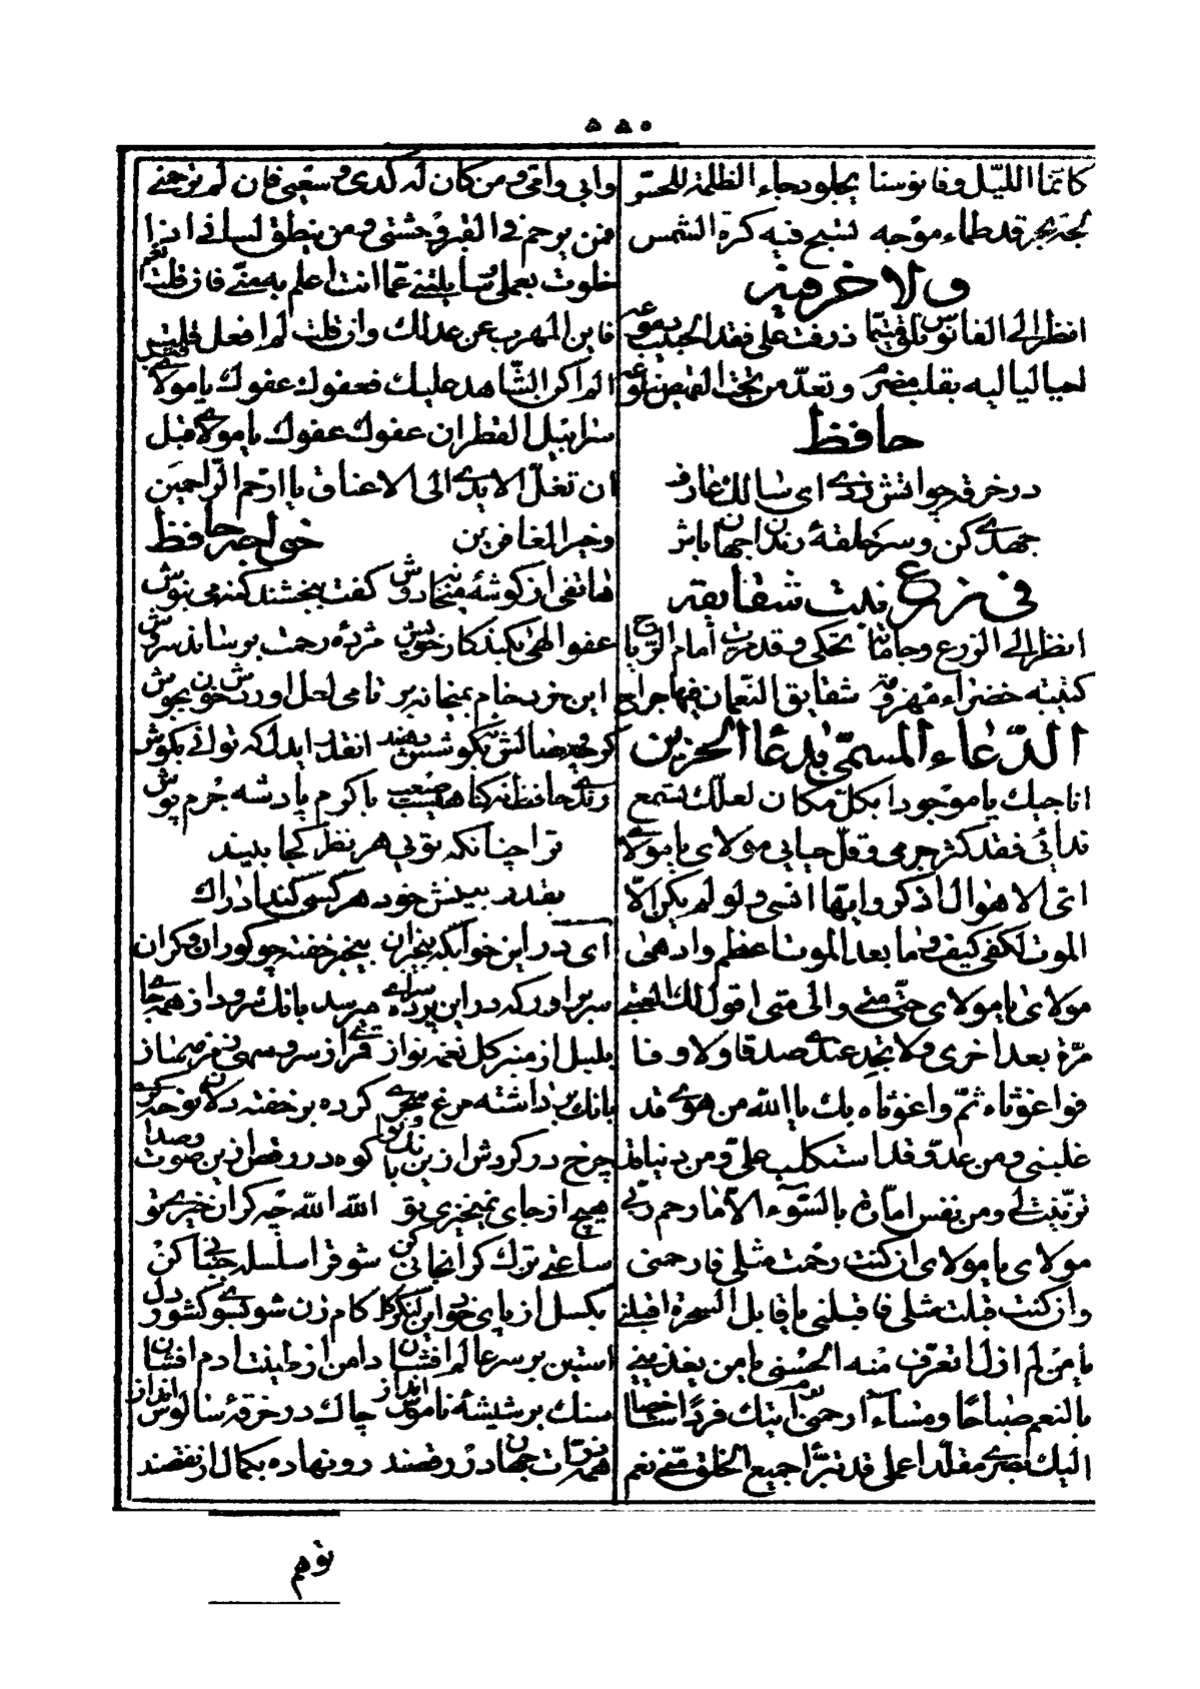 ۵۵۰
كانما الليل وفانوسنا يجلو دجاء الظلمة للحسّ
لجة بحر قد طماء موجه تسبح فيه كرة الشمس
ولاخر فيه
انظر الى الفانوس تلق متيّما ذرفت على فقد الحبيب دموعه
لحيا ليا ليه بقلب مضرم وتعدّ من تحت القميص ضلوعه
حافظ
در خرقه چو آتش زدی ای سالک عارف
جهدی کن و سر حلقهٔ رندان جهان باش
فی زرع نبت شقایقه
انظر الى الزرع وجاماته تحكي وقد مرت أمام الرياح
كتيبه خضراء مهزومة شقايق النعمان فيها جراح
الدّعاء المسمّى بدعاء الحزين
اناجيك يا موجودا بكلّ مكان لعلك تسمع
ندائي فقد كثر جرمي وقلّ حيائي مولاى يا مولاى
اىّ الاهوال اذكر وايّها انسى ولو لم يكن الّا
الموت لكفى كيف وما بعد الموت اعظم وادهى
مولاى يا مولاى حتى متى والى متى اقول لك العتبى
مرّة بعد اخرى ولا تجد عندى صدقا ولا وفا
فواغوثاه ثمّ واغوثاه بك يا اللّه من هوى قد
غلبنى ومن عدوّ قد استكلب علىّ ومن دنيا قد
تزيّنت لى ومن نفس امّارة بالسّوء الّا ما رحم ربّى
مولاى يا مولاى ان كنت رحمت مثلى فارحمنى
وان كنت قبلت مثلى فاقبلنى يا قابل السحرة اقبلنى
يا من لم ازل اتعرّف منه الحسنى يا من يغذينى
بالنعم صباحا ومسآء ارحمنى يوم آتيك فردا شاخصا
اليك بصرى مقلّدا عملى قد تبرّأ جميع الخلق منّى نعم
وابى وامّى ومن كان له كدى وسعيى فان لم ترحمنى
فمن يرحمنى ومن يونس فى القبر وحشتى ومن ينطق لسانى اذا
خلوت بعملى وسايلتنى عمّا انت اعلم به منّى فان قلت نعم
فاين المهرب من عدلك وان قلت لم افعل قلت
الم اكن الشّاهد عليك فعفوك عفوك يا مولاى قبل
سرابيل القطران عفوك عفوك يا مولاى قبل
ان تغلّ الايدى الى الاعناق يا ارحم الرّاحمين
وخير الغافرين خواجه حافظ
هاتفی از گوشهٔ میخانه دوش گفت ببخشند گنه می بنوش
عفو الهی بکند کار خویش مژدهٔ رحمت برساند سروش
این خرد خام بمیخانه بر تا می لعل آوردش خون بجوش
گرچه وصالش نه بکوشش دهند آنقدر ایدل که توانی بکوش
رندی حافظ نه گناهیست صعب با کرم پادشه جرم پوش
ترا چنانکه توئی هر نظر کجا بیند
بقدر بینش خود هر کسی کند ادراک
ای در این خوابگه بیخبران بیخبر خفته چو کوران و کران
سر برآور که در این پرده سرای میرسد بانک سرود از همه جا
بلبل از منبر گل نغمه نواز قمری از سرو سهی زمزمه ساز
بانک برداشته مرغ سحری کرده بر خفته دلان نوحه گری
چرخ در گردش ازین بانک و نوا کوه در رقص ازین صوت و صدا
هیچ از جای نمیخیزی تو اللّه اللّه چه گران خیزی تو
ساعتی ترک گرانجانی کن شوق را سلسله جنبانی کن
بگسل از پای خود این لنگر گل گام زن شو بسوی کشور دل
آستین بر سر عالم افشان دامن از طینت آدم افشان
سنک بر شیشهٔ ناموس انداز چاک در خرقهٔ سالوس انداز
همه ذرّات جهان در رقصند رو نهاده بکمال از نقصند
توهم